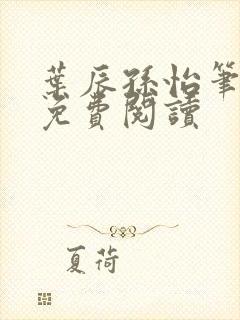 葉辰孫怡筆
免費閱讀
夏荷